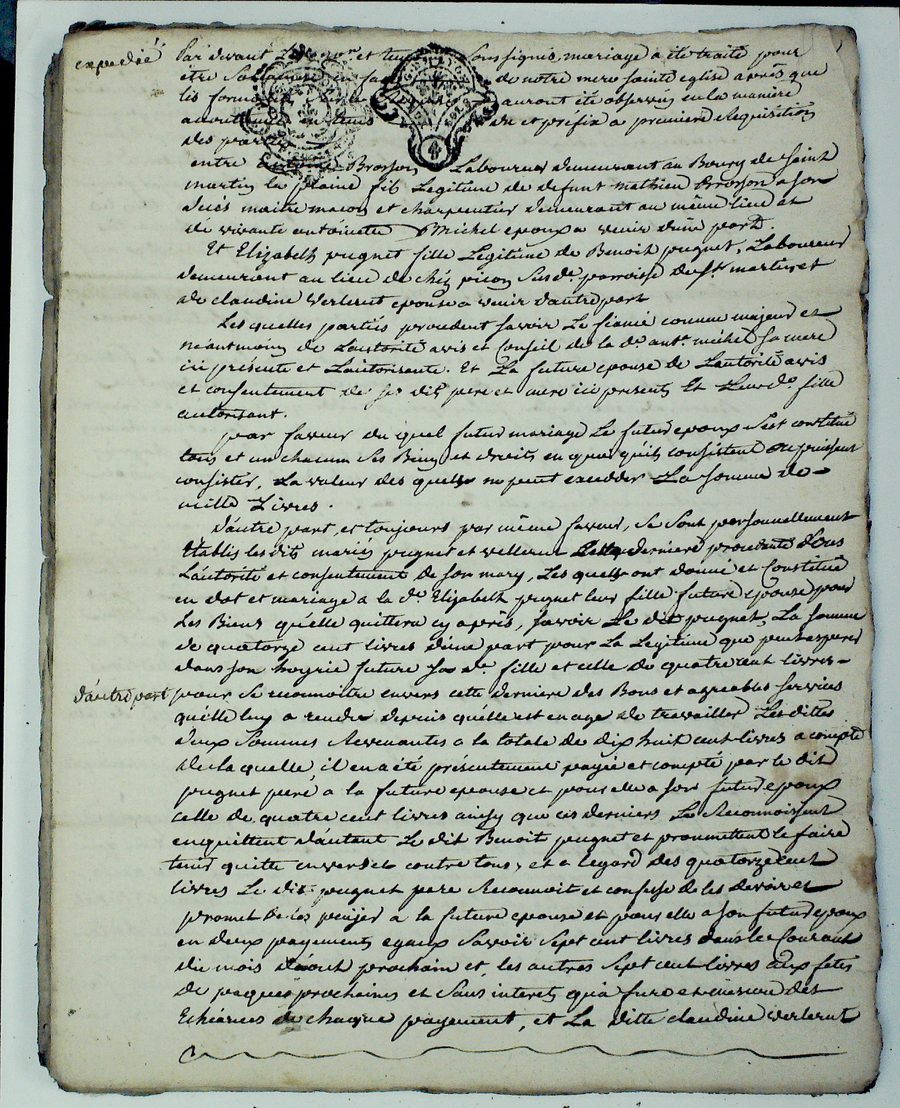 expedié
Par devant et soussignés, mariage a été traité pour
être de notre mere sainte eglise aprés que
les auront été observées en la maniere
du et prefix a premiere Requisition
des parties
entre Brosson Laboureur demeurant au Bourg de Saint
martin la plaine fils Legitime de defunt mathieu Brosson a son
decés maitre macon et charpentier demeurant au même lieu et
de vivante antoinette Michel epoux a venir d'une part.
Et Elizabeth pugnet fille Legitime de Benoit pugnet, Laboureur
demeurant au lieu de paroisse de St martin et
de claudine Verlerut epouse a venir d'autre part
Les quelles parties procedent savoir Le fiancé comme majeur et
néantmoins de Lautorité avis et Conseil de la de. ant.e michel sa mere
ici présente et Lautorisante. Et La future epouse de Lautorité avis
et consentement de ses dits pere et mere ici presents Et Leur de. fille
autorisant.
par faveur du quel futur mariage Le futur epoux s'est constitué
tous et un chacun Ses Biens et droits en quoi qu'ils consistent ou puissent
consister, La valeur des quels ne peut exceder La Somme de
mille Livres.
D'autre part, et toujours par même faveur, Se Sont personnellement
Etablis les dits mariés pugnet et Cette derniere procedante Sous
Lautorité et consentement de son mary, Les quels ont donné et Constitué
en dot et mariage a la de. Elizabeth pugnet leur fille future epouse pour
Les Biens qu'elle quittera cy aprés, savoir Le dit pugnet, La somme
de quatorze cent livres d'une part pour La Legitime que peut esperer
dans son hoyrie future sa de. fille et celle de quatre cent livres
d'autre part pour Se reconnoitre envers cette derniere des Bons et agreables services
qu'elle leur a rendu depuis qu'elle est en age de travailler Les dittes
deux Sommes Revenantes a la totale de dix huit cent livres a compte
de la quelle, il en a été présentement payée et compté par le dit
pugnet pere, a la future epouse et pour elle a son futur epoux
celle de quatre cent livres ainsy que ces derniers Le Reconnoissent
en quittent d'autant Le dit Benoit pugnet et promettent le faire
tenir quitte envers et contre tous, et a legard des quatorze cent
livres Le dit pugnet pere Reconnoit et confesse de les devoir et
promet de les payer a la future epouse et pour elle a son futur epoux
en deux payements egaux Savoir Sept cent livres dans le Courant
du mois d'août prochain et, les autres Sept cent livres aux fetes
de paques prochaines et Sans interets qu'a fure et mesure des
Echéances de chaque payement, et La ditte claudine Verlerut